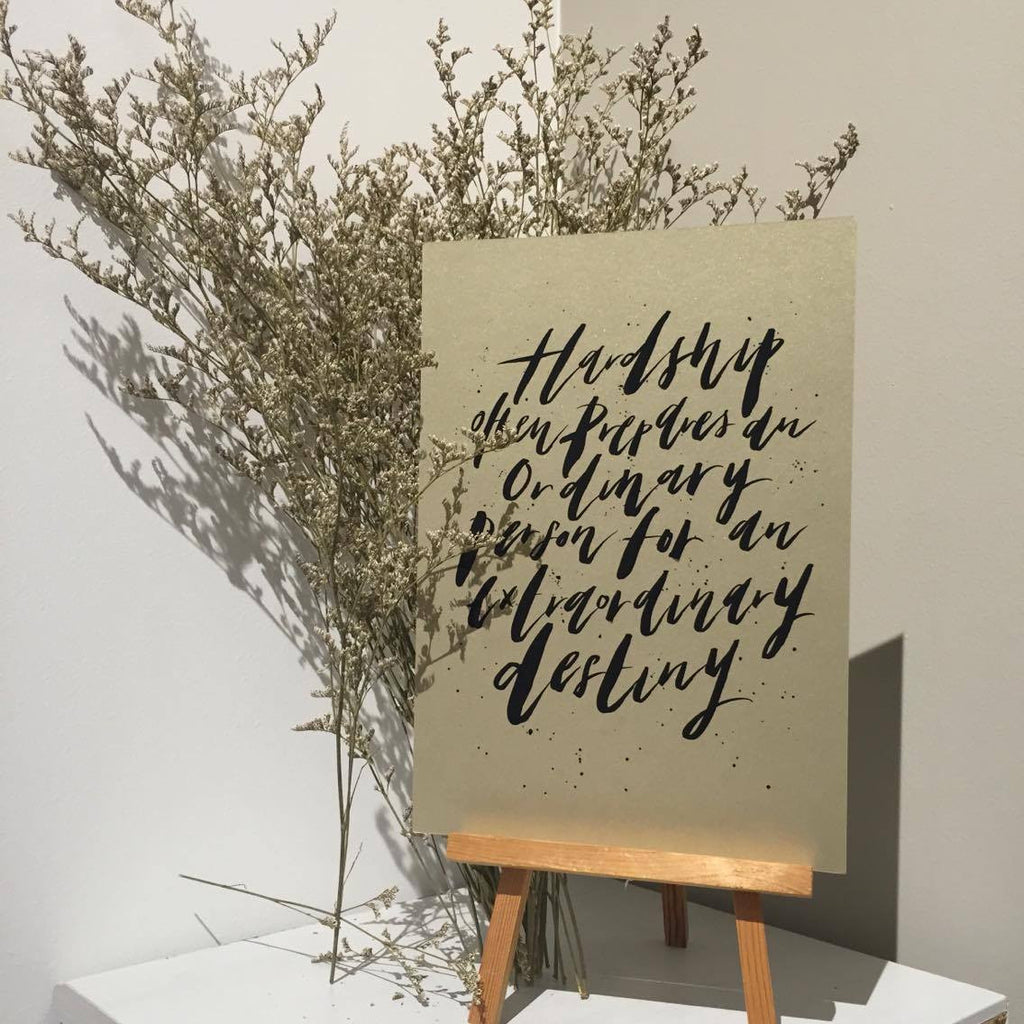 Hardship
often Prepares an
Ordinary
person for an
extraordinary
destiny